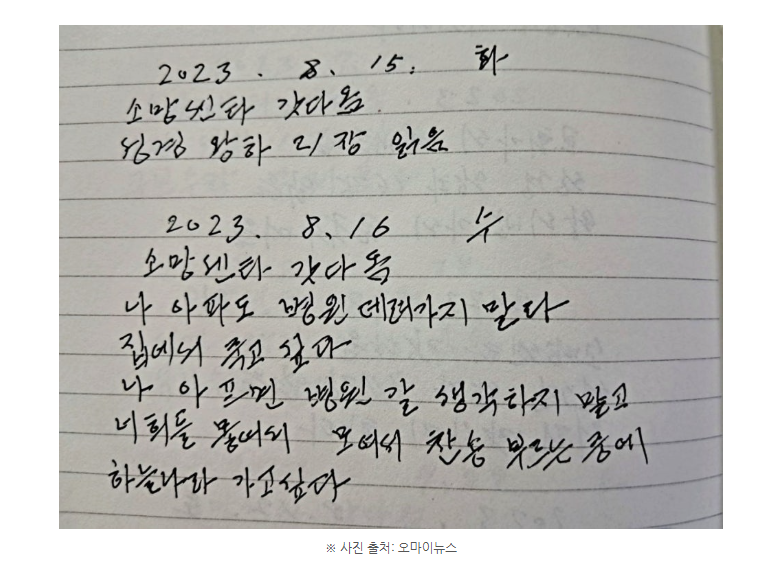 2023. 8. 15. 화
소망쎈타 갓다옴
성경 왕하 21장 읽음
2023. 8. 16 수
소망쎈타 갓다옴
나 아파도 병원 데려가지 말다
집에서 죽고 싶다
나 아프면 병원 갈 생각하지 말고
너희들 모여서 찬송 부르는 중에
하늘나라 가고싶다
※ 사진 출처: 오마이뉴스